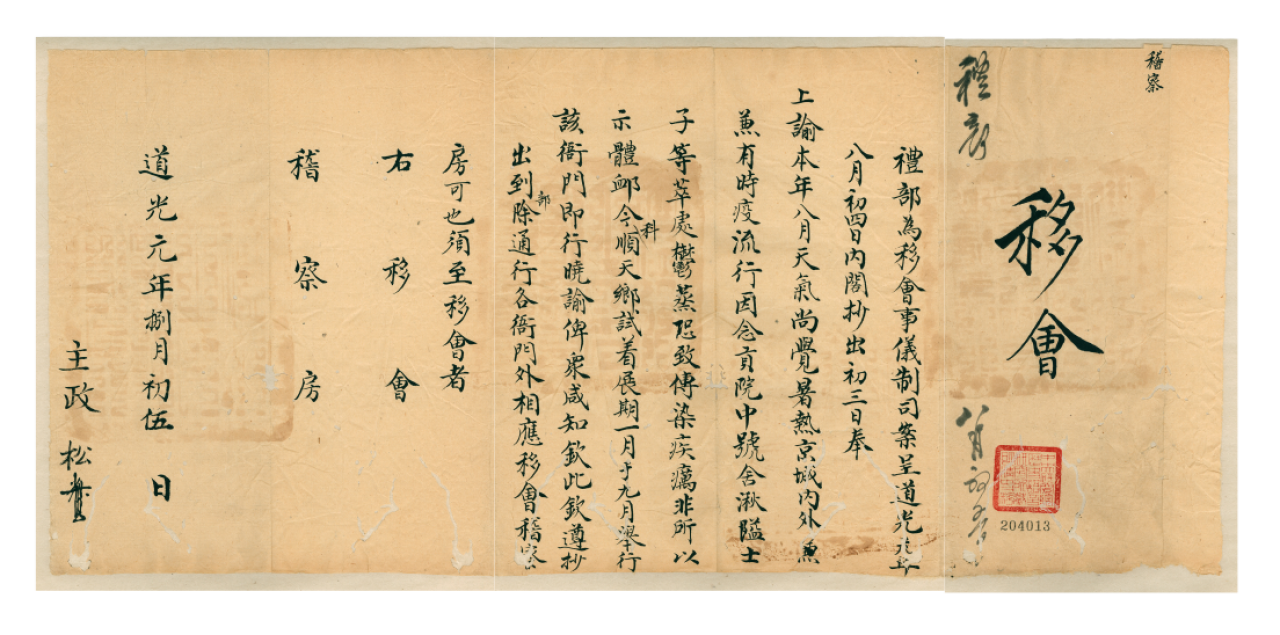 稽察
移會
204013
禮部為移會事儀制司案呈道光元年
八月初四日內閣抄出初三日奉
上諭本年八月天氣尚覺暑熱京城內外兼
兼有時疫流行因念貢院中號舍湫隘士
子等萃處鬱蒸恐致傳染疾癘非所以
示體卹今科順天鄉試着展期一月于九月舉行
該衙門即行曉諭俾衆咸知欽此欽遵抄
出到部除通行各衙門外相應移會稽察
房可也須至移會者
右移會
稽察房
道光元年捌月初伍日
主政松